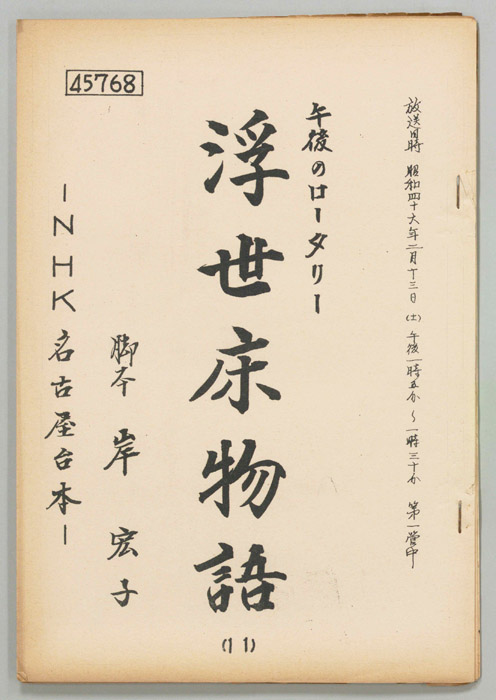 放送日時 昭和四十六年二月十三日(土)午後一時五分~一時三十分 第一営印
午後のロータリー
浮世床物語
(11)
脚本 岸 宏子
-NHK名古屋台本-
45768